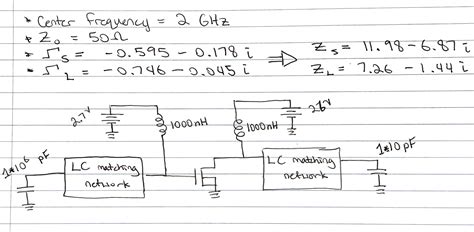 * Center frequency = 2 GHz
* Z₀ = 50Ω
* Γs = -0.595 - 0.178 i ⇒ Zs = 11.98 - 6.87 i
* ΓL = -0.746 - 0.045 i ZL = 7.26 - 1.44 i
2.7V 1000nH 1000nH 28V
1*10⁶ pF LC matching network LC matching network 1*10 pF